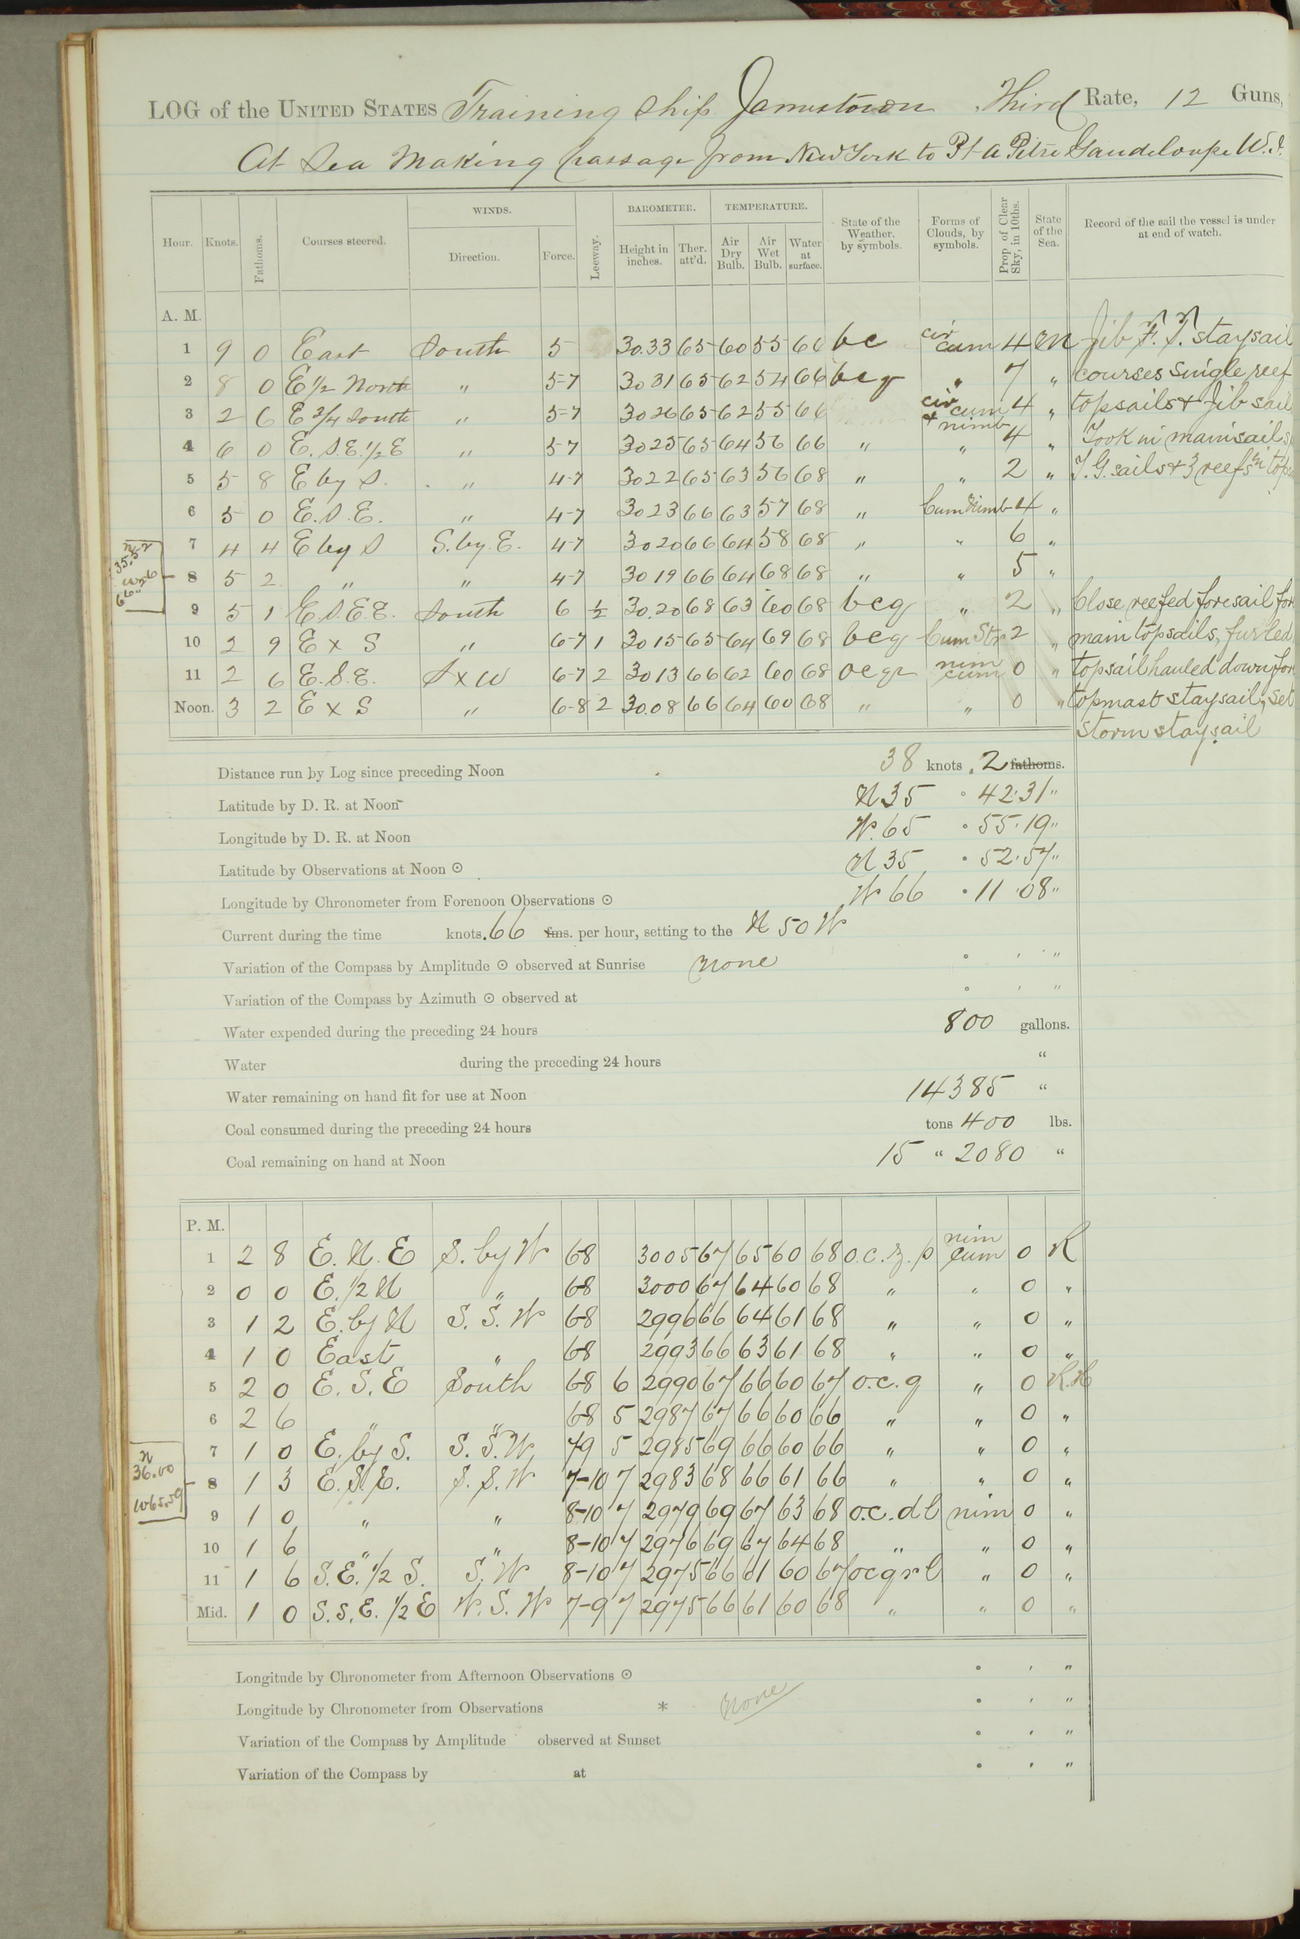 LOG of the UNITED STATES Training Ship Jamestown, Third Rate, 12 Guns,
At Sea Making passage from New York to Pt a Pitre Gaudeloupe W.I.
Hour. Knots. Fathoms. Courses steered. WINDS. Direction. Force. Leeway. BAROMETER. Height in inches. Ther. att'd. TEMPERATURE. Air Dry Bulb. Air Wet Bulb. Water at surface. State of the Weather, by symbols. Forms of Clouds, by symbols. Prop. of Clear Sky, in 10ths. State of the Sea. Record of the sail the vessel is under at end of watch.
A. M.
1 9 0 East South 5 30.33 65 60 55 66 bc cir cum 4 m Jib F. T. staysail
2 8 0 E 1/2 North " 5-7 30 31 65 62 54 66 bcq " 7 " courses single reef
3 2 6 E 3/4 South " 5-7 30 26 65 62 55 66 cir cum & nimb 4 " topsails & Jib sail
4 6 0 E. S.E. 1/2 E " 5-7 30 25 65 64 56 66 " " 4 " Took in mainsail
5 5 8 E by S. " 4-7 30 22 65 63 56 68 " " 2 " T. G. sails & 3 reefs in
6 5 0 E. S. E. " 4-7 30 23 66 63 57 68 " Cum Nimb 4 "
7 4 4 E by S S. by. E. 4-7 30 20 66 64 58 68 " " 6 "
8 5 2 " " 4-7 30 19 66 64 68 68 " " 5 "
9 5 1 E S E E. South 6 1/2 30.20 68 63 60 68 bcq " 2 " Close reefed foresail for
10 2 9 E x S " 6-7 1 30 15 65 64 69 68 bcq Cum Str 2 " main topsails, furled
11 2 6 E. S. E. S x W 6-7 2 30 13 66 62 60 68 ocqr nim cum 0 " topsail hauled down for
Noon. 3 2 E x S " 6-8 2 30.08 66 64 60 68 " " 0 " topmast staysail, set
storm staysail
n 35.52
w 66
Distance run by Log since preceding Noon 38 knots . 2 fathoms.
Latitude by D. R. at Noon N 35 ° 42 ' 31 "
Longitude by D. R. at Noon W. 65 ° 55 ' 19 "
Latitude by Observations at Noon ☉ N 35 ° 52 ' 57 "
Longitude by Chronometer from Forenoon Observations ☉ W 66 ° 11 ' 08 "
Current during the time knots .66 fms. per hour, setting to the N 50 W
Variation of the Compass by Amplitude ☉ observed at Sunrise none ° ' "
Variation of the Compass by Azimuth ☉ observed at ° ' "
Water expended during the preceding 24 hours 800 gallons.
Water during the preceding 24 hours "
Water remaining on hand fit for use at Noon 14385 "
Coal consumed during the preceding 24 hours tons 400 lbs.
Coal remaining on hand at Noon 15 " 2080 "
P. M.
1 2 8 E. N. E S. by W 6-8 3005 67 65 60 68 o.c.z.p nim cum 0 R
2 0 0 E. 1/2 N " 6-8 3000 67 64 60 68 " " 0 "
3 1 2 E. by N S. S. W 6-8 2996 66 64 61 68 " " 0 "
4 1 0 East " 6-8 2993 66 63 61 68 " " 0 "
5 2 0 E. S. E South 6-8 6 2990 67 66 60 67 o.c.q " 0 R.H
6 2 6 " " 6-8 5 2987 67 66 60 66 " " 0 "
7 1 0 E. by S. S. S. W 7-9 5 2985 69 66 60 66 " " 0 "
8 1 3 E. S. E. S. S. W 7-10 7 2983 68 66 61 66 " " 0 "
9 1 0 " " 8-10 7 2979 69 67 63 68 o.c.dl nim 0 "
10 1 6 " " 8-10 7 2976 69 67 64 68 " " 0 "
11 1 6 S. E. 1/2 S. S. W 8-10 7 2975 66 61 60 67 ocqrl " 0 "
Mid. 1 0 S. S. E. 1/2 E W. S. W 7-9 7 2975 66 61 60 68 " " 0 "
n 36.00
w 65.59
Longitude by Chronometer from Afternoon Observations ☉ ° ' "
Longitude by Chronometer from Observations * none ° ' "
Variation of the Compass by Amplitude observed at Sunset ° ' "
Variation of the Compass by at ° ' "